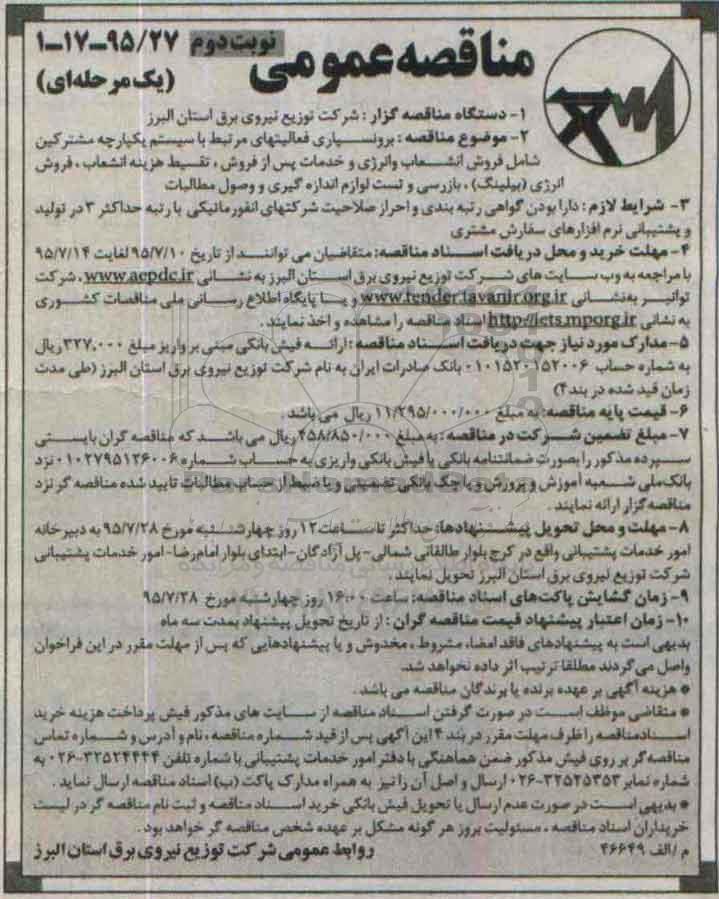 مناقصه عمومی
نوبت دوم
۹۵/۲۷-۱۷-۱
(یک مرحله‌ای)
۱- دستگاه مناقصه گزار : شرکت توزیع نیروی برق استان البرز
۲- موضوع مناقصه : برونسپاری فعالیتهای مرتبط با سیستم یکپارچه مشترکین
شامل فروش انشعاب وانرژی و خدمات پس از فروش ، تقسیط هزینه انشعاب ، فروش
انرژی (بیلینگ) ، بازرسی و تست لوازم اندازه گیری و وصول مطالبات
۳- شرایط لازم : دارا بودن گواهی رتبه بندی و احراز صلاحیت شرکتهای انفورماتیکی با رتبه حداکثر ۳ در تولید
و پشتیبانی نرم افزارهای سفارش مشتری
۴- مهلت خرید و محل دریافت اسناد مناقصه: متقاضیان می توانند از تاریخ ۹۵/۷/۱۰ لغایت ۹۵/۷/۱۴
با مراجعه به وب سایت های شرکت توزیع نیروی برق استان البرز به نشانی www.aepdc.ir ، شرکت
توانیر به نشانی www.tender.tavanir.org.ir و یا پایگاه اطلاع رسانی ملی مناقصات کشوری
به نشانی http://iets.mporg.ir اسناد مناقصه را مشاهده و اخذ نمایند .
۵- مدارک مورد نیاز جهت دریافت اسناد مناقصه : ارائه فیش بانکی مبنی بر واریز مبلغ ۳۲۷,۰۰۰ ریال
به شماره حساب ۰۱۰۱۵۲۰۱۵۲۰۰۶ بانک صادرات ایران به نام شرکت توزیع نیروی برق استان البرز (طی مدت
زمان قید شده در بند ۴)
۶- قیمت پایه مناقصه: به مبلغ ۱۱/۲۹۵/۰۰۰/۰۰۰ ریال می باشد .
۷- مبلغ تضمین شرکت در مناقصه : به مبلغ ۴۵۸/۸۵۰/۰۰۰ ریال می باشد که مناقصه گران بایستی
سپرده مذکور را بصورت ضمانتنامه بانکی یا فیش بانکی واریزی به حساب شماره ۰۱۰۲۷۹۵۱۲۶۰۰۶ نزد
بانک ملی شعبه آموزش و پرورش و یا چک بانکی تضمینی و یا ضبط از حساب مطالبات تایید شده مناقصه گر نزد
مناقصه گزار ارائه نمایند .
۸- مهلت و محل تحویل پیشنهادها: حداکثر تا ساعت ۱۲ روز چهارشنبه مورخ ۹۵/۷/۲۸ به دبیرخانه
امور خدمات پشتیبانی واقع در کرج بلوار طالقانی شمالی- پل آزادگان- ابتدای بلوار امام رضا- امور خدمات پشتیبانی
شرکت توزیع نیروی برق استان البرز تحویل نمایند .
۹- زمان گشایش پاکت‌های اسناد مناقصه: ساعت ۱۶:۰۰ روز چهارشنبه مورخ ۹۵/۷/۲۸
۱۰- زمان اعتبار پیشنهاد قیمت مناقصه گران : از تاریخ تحویل پیشنهاد بمدت سه ماه
بدیهی است به پیشنهادهای فاقد امضا، مشروط ، مخدوش و یا پیشنهادهایی که پس از مهلت مقرر در این فراخوان
واصل می گردند مطلقا ترتیب اثر داده نخواهد شد.
* هزینه آگهی بر عهده برنده یا برندگان مناقصه می باشد .
* متقاضی موظف است در صورت گرفتن اسناد مناقصه از سایت های مذکور فیش پرداخت هزینه خرید
اسناد مناقصه را ظرف مهلت مقرر در بند ۴ این آگهی پس از قید شماره مناقصه ، نام و آدرس و شماره تماس
مناقصه گر بر روی فیش مذکور ضمن هماهنگی با دفتر امور خدمات پشتیبانی با شماره تلفن ۳۲۵۲۴۴۴۴-۰۲۶ به
شماره نمابر ۳۲۵۲۵۳۵۳-۰۲۶ ارسال و اصل آن را نیز به همراه مدارک پاکت (ب) اسناد مناقصه ارسال نماید .
* بدیهی است در صورت عدم ارسال یا تحویل فیش بانکی خرید اسناد مناقصه و ثبت نام مناقصه گر در لیست
خریداران اسناد مناقصه ، مسئولیت بروز هر گونه مشکل بر عهده شخص مناقصه گر خواهد بود .
روابط عمومی شرکت توزیع نیروی برق استان البرز
م / الف ۴۶۶۴۹